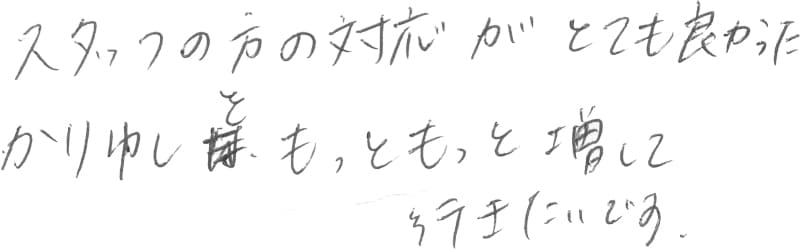 スタッフの方の対応がとても良かった
かりゆしともっともっと増して
行きたいです.